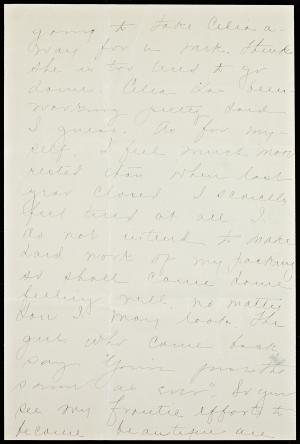 going to take Celia a-
way for a rest. Thinks
she is too tired to go
down. Celia has been
working pretty hard
I guess. As for my-
self, I feel much more
rested than when last
year closed. I scarcely
feel tired at all. I
do not intend to make
hard work of my packing
so shall come down
feeling well, no matter
how I may look. The
girls who came back
say "You're just the
same as ever" So you
see my frantic efforts to
become beauteous are